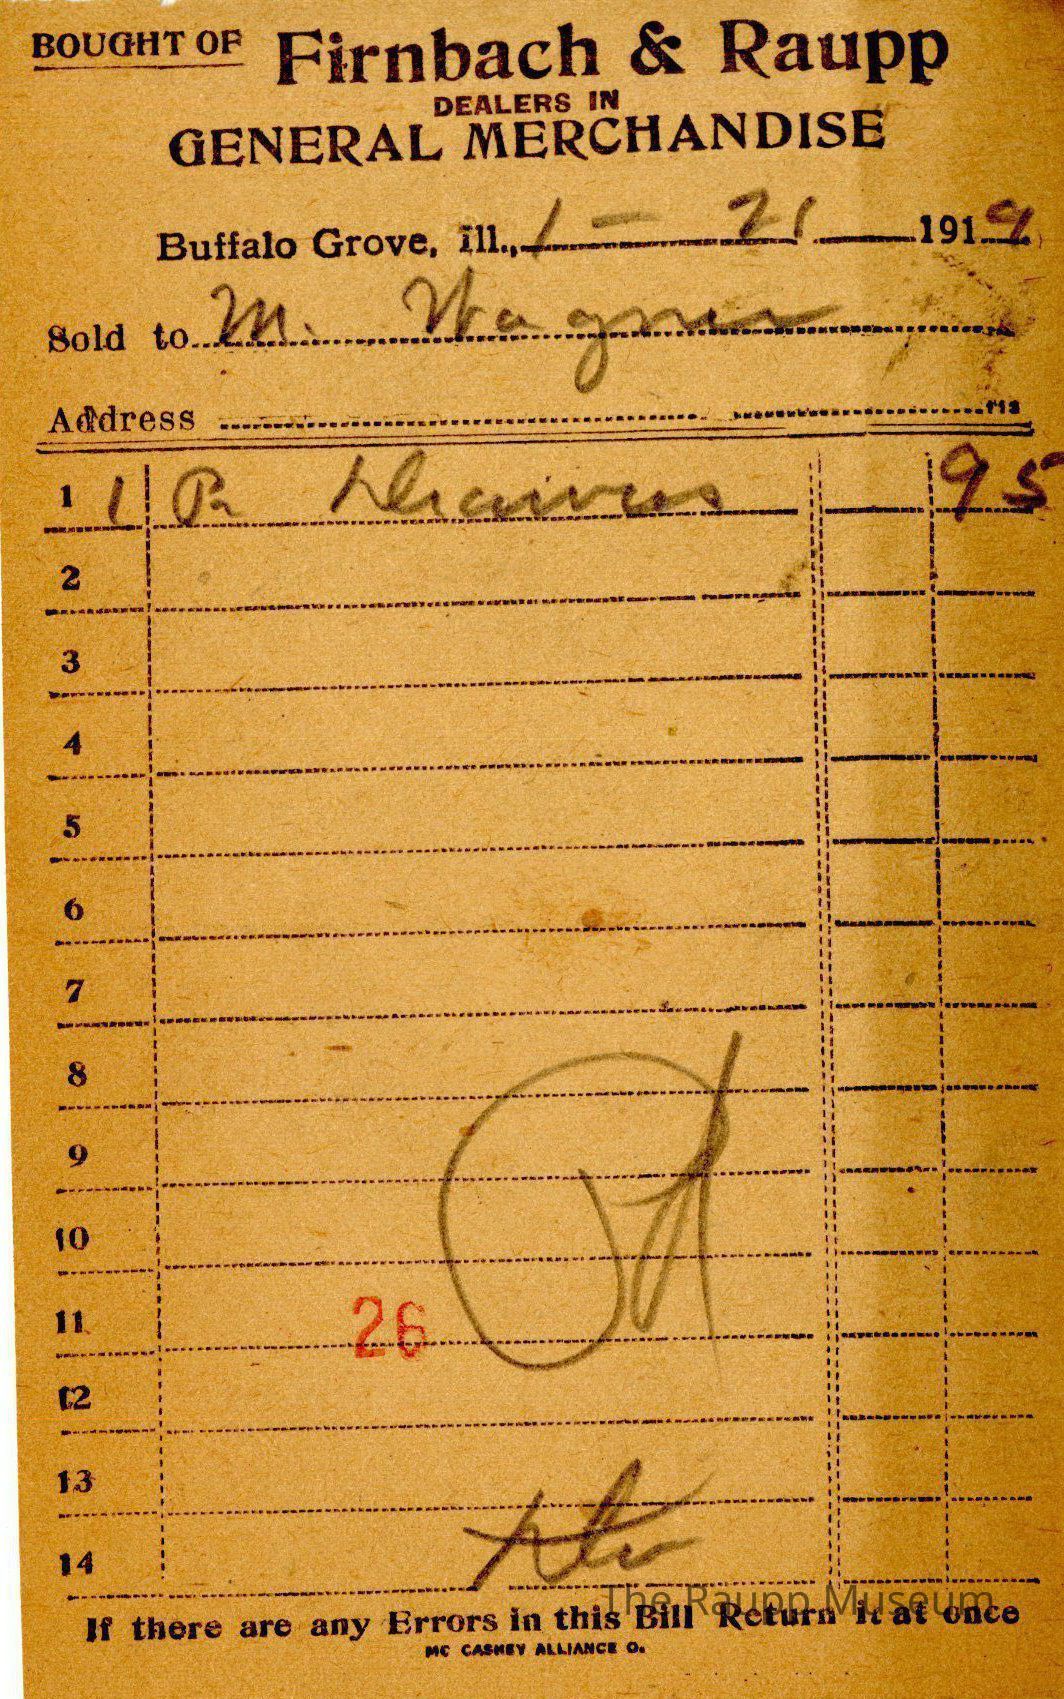 BOUGHT OF Firnbach & Raupp
DEALERS IN
GENERAL MERCHANDISE
Buffalo Grove, Ill., 1 - 21 1919
Sold to M. Wagner
Address
1 1 Pr 95
2
3
4
5
6
7
8
9
10
11 26
12
13
14
The Raupp Museum
If there are any Errors in this Bill Return it at once
MC CASKEY ALLIANCE O.